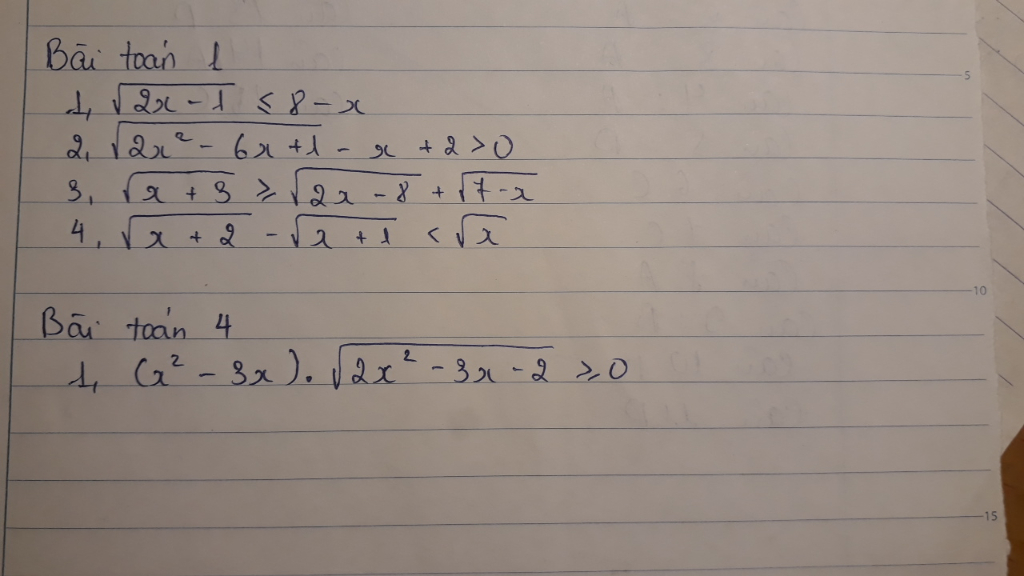 Bài toán 1
1, √(2x - 1) ≤ 8 - x
2, √(2x² - 6x + 1) - x + 2 > 0
3, √(x + 3) ≥ √(2x - 8) + √(7 - x)
4, √(x + 2) - √(x + 1) < √x
Bài toán 4
1, (x² - 3x). √(2x² - 3x - 2) ≥ 0
5
10
15